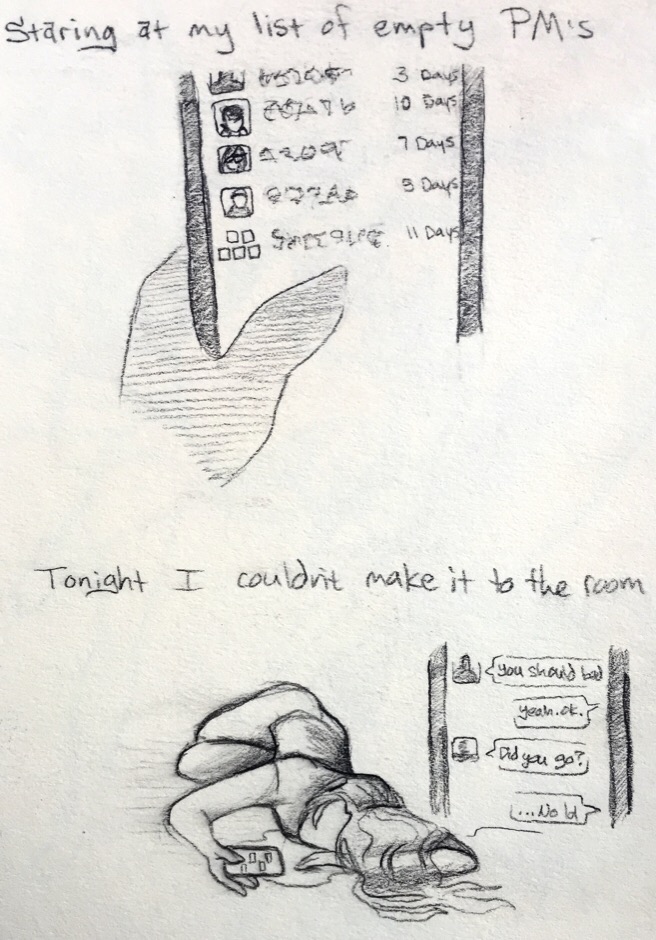 Staring at my list of empty PM's
3 Days
10 Days
7 Days
9 Days
11 Days
Tonight I couldn't make it to the room
you should
yeah.ok.
Did you go?
...No